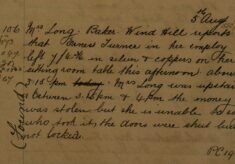 5th Aug
106 Mrs Long. Baker. Wind Hill reports
that James Turner in her employ
left 7/4½ in silver & coppers on her
sitting room table this afternoon about
3.15pm today. Mrs Long was upstairs
between 3.15pm & 4pm the money
was stolen but she is unable to
who took it the doors were shut but
not locked.
PC 19